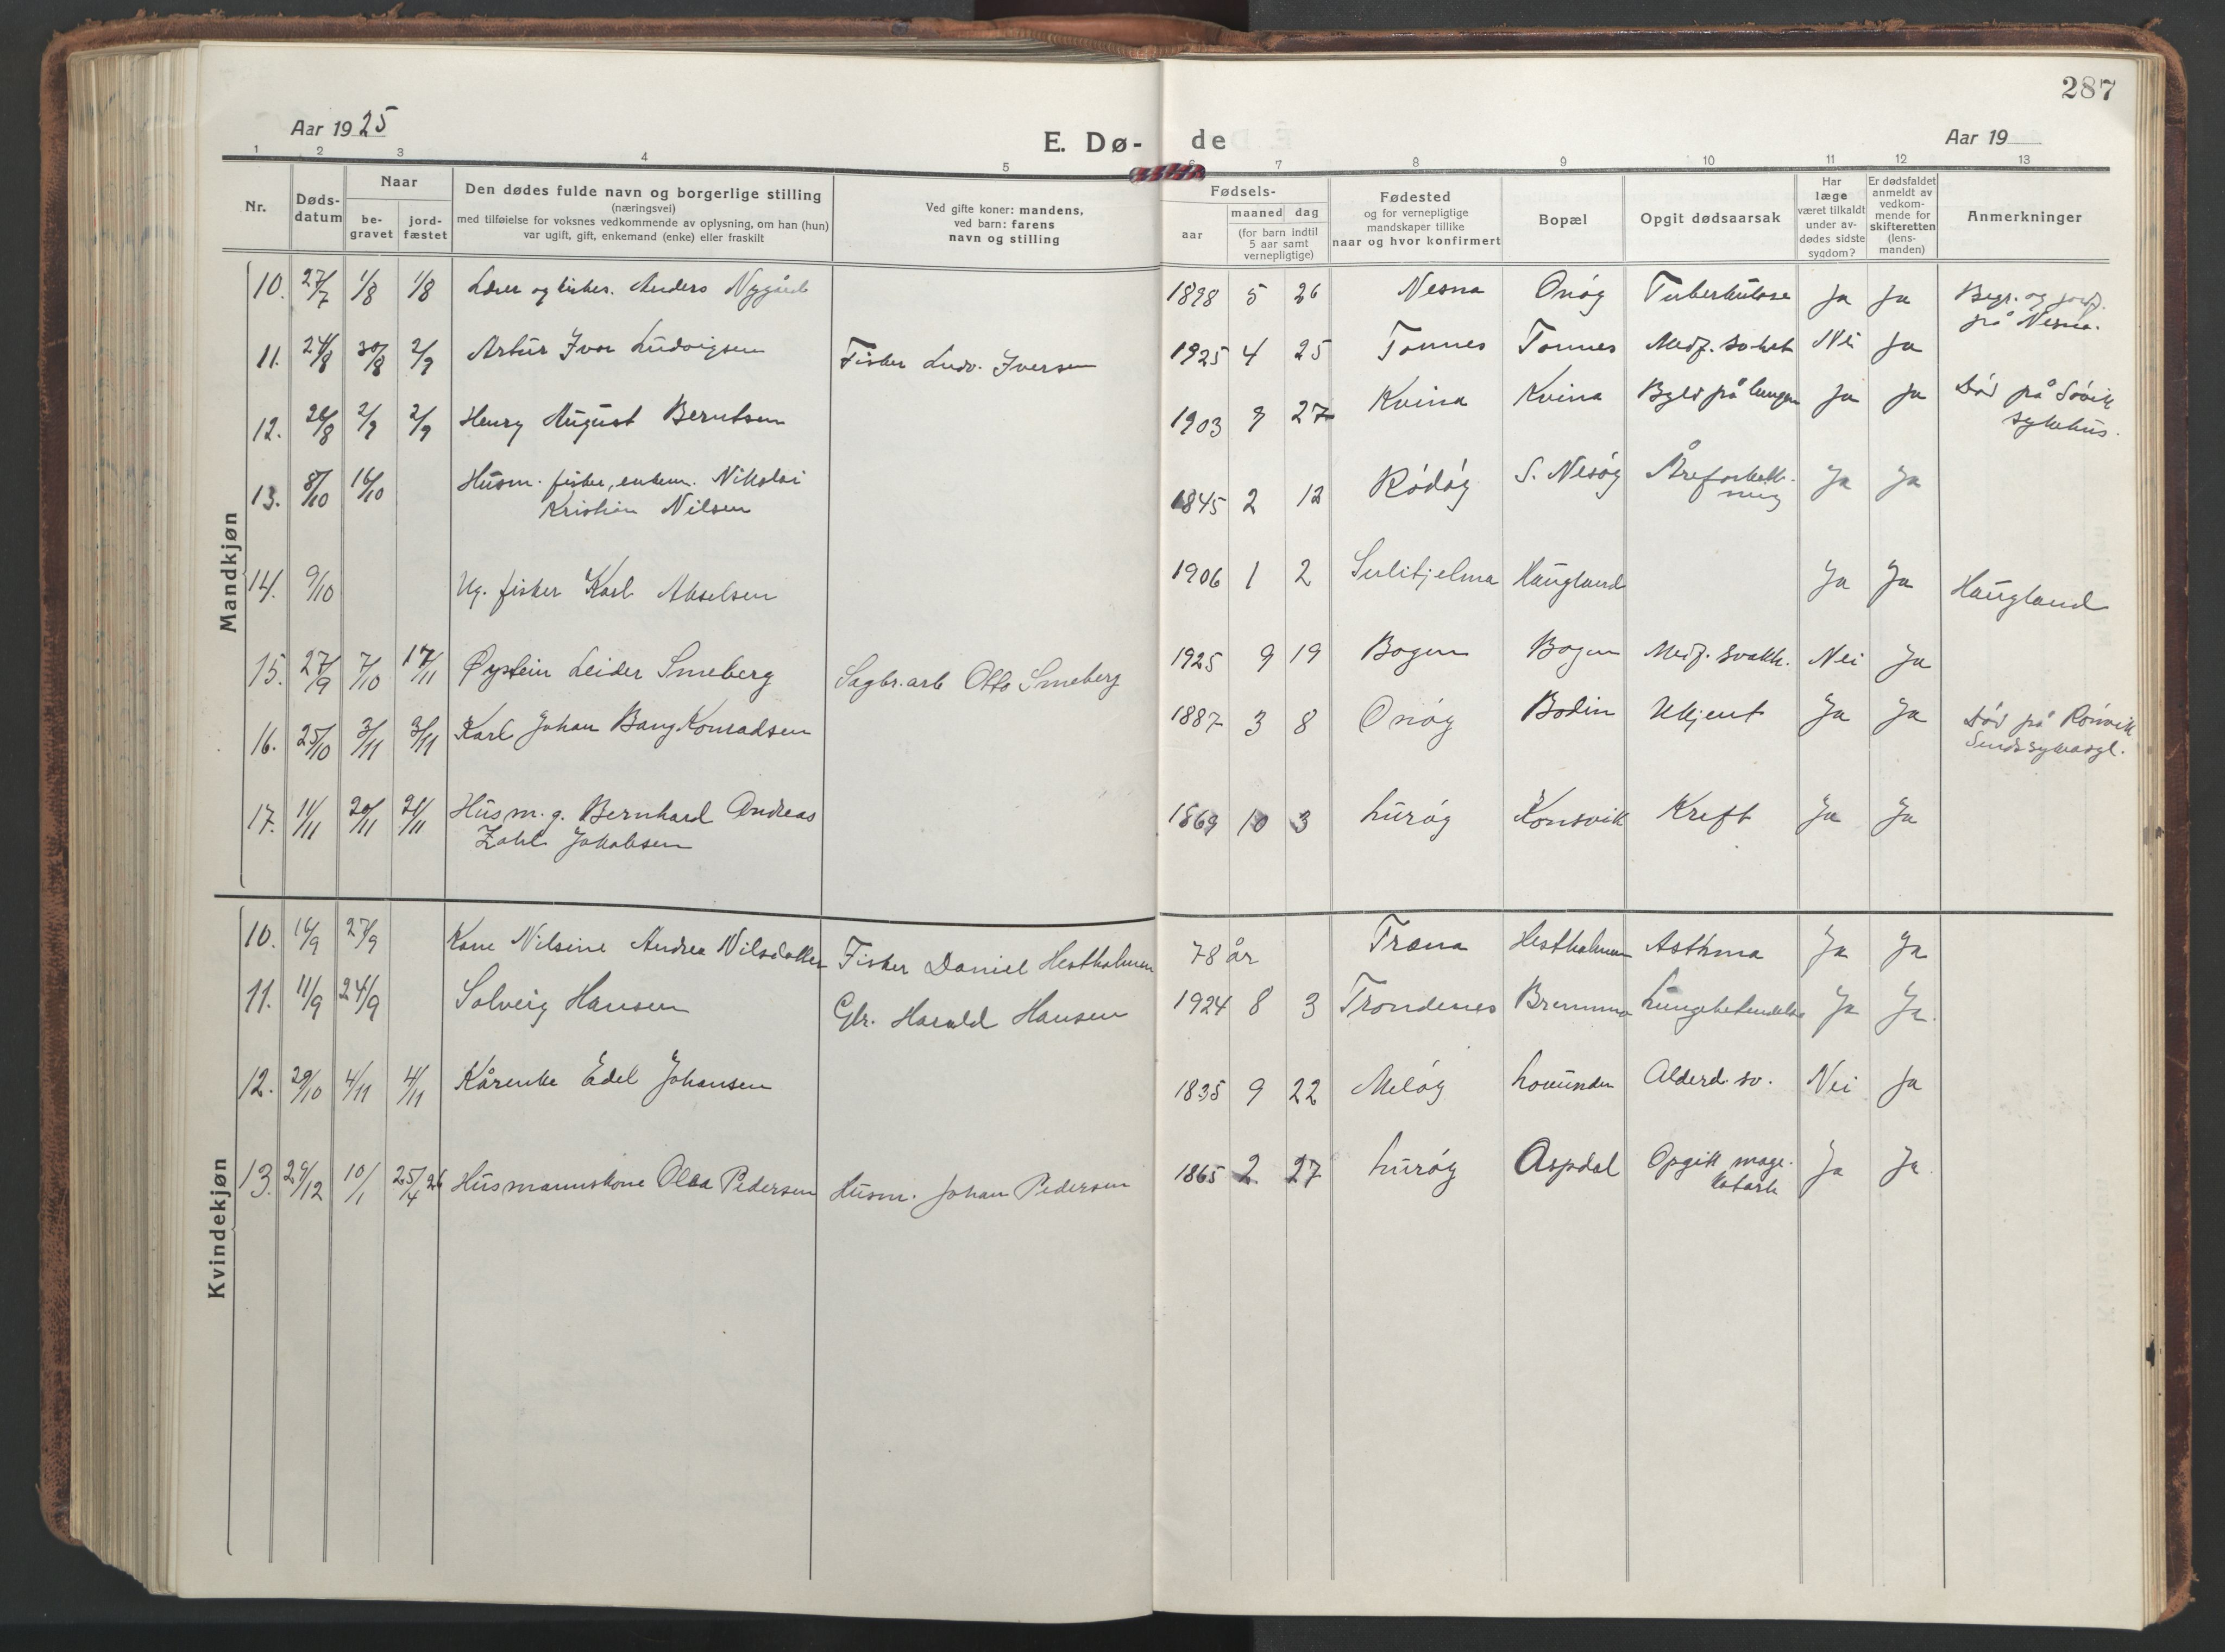 287
Aar 1925
E. Dø- de
Aar 19
1 2 3 4 5 6 7 8 9 10 11 12 13
Nr.
Døds-
datum
Naar
be-
gravet
jord-
fæstet
Den dødes fulde navn og borgerlige stilling
(næringsvei)
med tilføielse for voksnes vedkommende av oplysning, om han (hun)
var ugift, gift, enkemand (enke) eller fraskilt
Ved gifte koner: mandens,
ved barn: farens
navn og stilling
Fødsels-
aar
maaned dag
(for barn indtil
5 aar samt
vernepligtige)
Fødested
og for vernepligtige
mandskaper tillike
naar og hvor konfirmert
Bopæl
Opgit dødsaarsak
Har
læge
været tilkaldt
under av-
dødes sidste
sygdom?
Er dødsfaldet
anmeldt av
vedkom-
mende for
skifteretten
(lens-
manden)
Anmerkninger
Mandkjøn
10. 27/7 1/8 1/8 Lærer og kirkes. Anders Nygård 1898 5 26 Nesna Onøy Tuberkulose Ja Ja Begr. og jordf.
på Nesna.
11. 24/8 30/8 2/9 Artur Ivar Ludvigsen Fisker Ludv. Iversen 1925 4 25 Tonnes Tonnes Medf. svakh Nei Ja
12. 26/8 2/9 2/9 Henry August Berntsen 1903 9 27 Kvina Kvina Byld på lungen Ja Ja Død på Søvik
sykehus.
13. 8/10 16/10 Husm. fisker, enkem. Nikolai
Kristian Nilsen 1845 2 12 Rødøy S. Nesøy Åreforkalk-
ning Ja Ja
14. 9/10 Ug. fisker Karl Akselsen 1906 1 2 Sulitjelma Haugland Ja Ja Haugland
15. 27/9 7/10 17/11 Øystein Leider Smeberg Sagbr.arb Otto Smeberg 1925 9 19 Bogen Bogen Medf. svakh. Nei Ja
16. 25/10 3/11 3/11 Karl Johan Bang Konradsen 1887 3 8 Onøy Bodin Ukjent Ja Ja Død på Rønvik
Sindssykeasyl.
17. 11/11 20/11 21/11 Husm. g. Bernhard Andreas
Zahl Jakobsen 1869 10 3 Lurøy Konsvik Kreft Ja Ja
Kvindekjøn
10. 16/9 27/9 Kone Nilsine Andrea Nilsdatter Fisker Daniel Hestholmen 78 år Træna Hestholmen Asthma Ja Ja
11. 11/9 24/9 Solveig Hansen Gbr. Harald Hansen 1924 8 3 Trondenes Bremmo Lungebetendelse Ja Ja.
12. 29/10 4/11 4/11 Kårenke Edel Johansen 1835 9 22 Meløy Lovunden Alderd. sv. Nei Ja
13. 29/12 10/1 25/4 26 Husmannskone Olea Pedersen Husm. Johan Pedersen 1865 2 27 Lurøy Aspdal Opgitt mage-
katarh Ja Ja